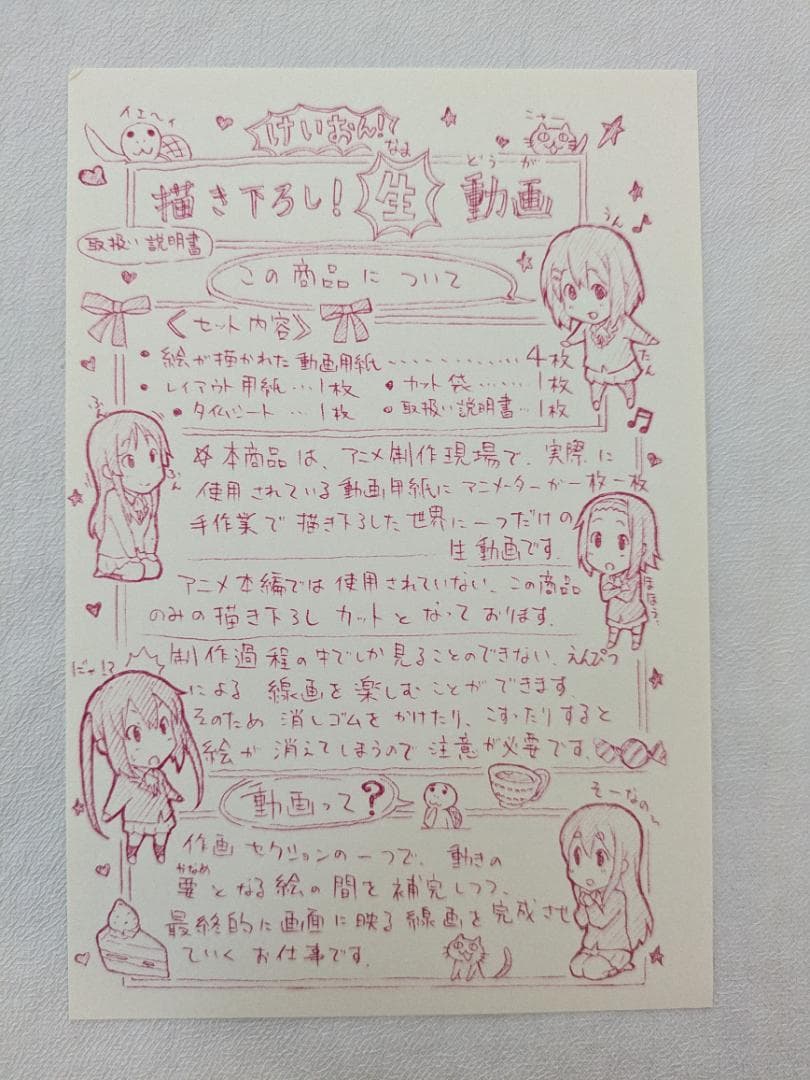 イエーイ
けいおん!
ニャー
なま
どうが
描き下ろし! 生 動画
取扱い説明書
うん
たん
この商品について
《セット内容》
・絵が描かれた動画用紙............4枚
・レイアウト用紙...1枚 ・カット袋......1枚
・タイムシート...1枚 ・取扱い説明書...1枚
ふん
ふん
本商品は、アニメ制作現場で、実際に
使用されている動画用紙にアニメーターが一枚一枚
手作業で描き下ろした世界に一つだけの
生動画です。
ほほう
アニメ本編では使用されていない、この商品
のみの描き下ろしカットとなっております。
にゃ!?
制作過程の中でしか見ることのできない、えんぴつ
による線画を楽しむことができます。
そのため消しゴムをかけたり、こすったりすると
絵が消えてしまうので注意が必要です。
動画って?
そーなの〜
作画セクションの一つで、動きの
かなめ
要となる絵の間を補完しつつ、
最終的に画面に映る線画を完成させ
ていくお仕事です。